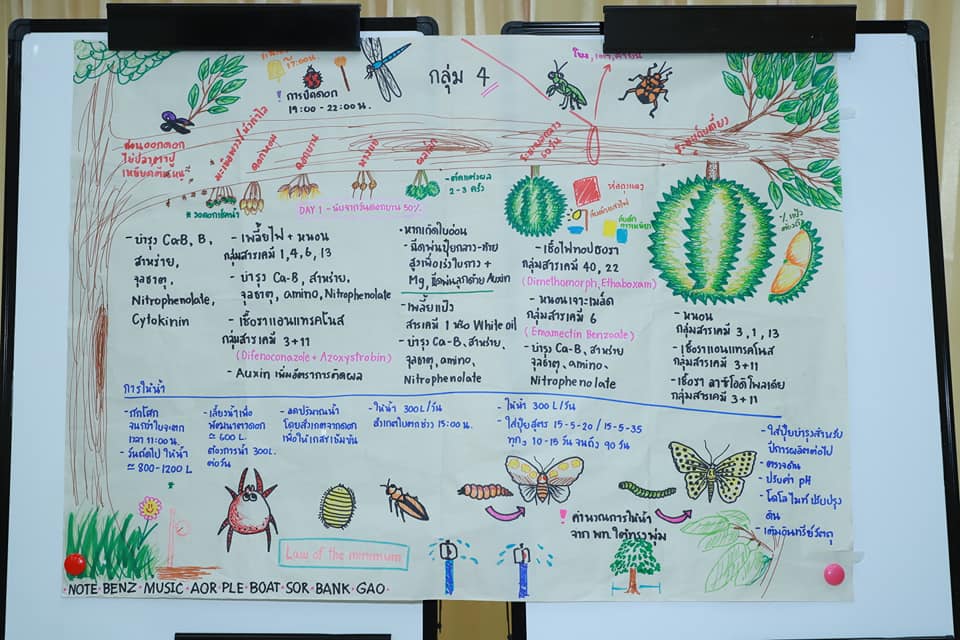 กลุ่ม 4
17:00น.
! การปัดดอก
19:00 - 22:00 น.
ก่อนออกดอก
ดอกบาน
หางแย้
- ตัดแต่งผล
2-3 ครั้ง
DAY 1 - นับจากวันดอกบาน 50%
- บำรุง Ca-B, B,
สาหร่าย,
จุลธาตุ,
Nitrophenolate,
Cytokinin
- เพลี้ยไฟ + หนอน
กลุ่มสารเคมี 1, 4, 6, 13
- บำรุง Ca-B, สาหร่าย,
จุลธาตุ, amino, Nitrophenolate
- เชื้อราแอนแทรคโนส
กลุ่มสารเคมี 3+11
(Difenoconazole + Azoxystrobin)
- Auxin เพิ่มอัตราการติดผล
• หากเกิดใบอ่อน
- ฉีดพ่นปุ๋ยกลาง-ท้าย
สูงเพื่อเร่งใบกาง +
Mg, ฉีดพ่นลูกด้วย Auxin
- เพลี้ยแป้ง
สารเคมี 1 หรือ White oil
- บำรุง Ca-B, สาหร่าย,
จุลธาตุ, amino,
Nitrophenolate
- เชื้อไฟทอปธอรา
กลุ่มสารเคมี 40, 22
(Dimethomorph, Ethaboxam)
- หนอนเจาะเมล็ด
กลุ่มสารเคมี 6
(Emamectin Benzoate)
- บำรุง Ca-B, สาหร่าย
จุลธาตุ, amino,
Nitrophenolate
- หนอน
กลุ่มสารเคมี 3, 1, 13
- เชื้อราแอนแทรคโนส
กลุ่มสารเคมี 3+11
- เชื้อรา ลาซิโอดิโพลเดีย
กลุ่มสารเคมี 3+11
การให้น้ำ
เวลา 11:00 น.
- วันถัดไป ให้น้ำ
≈ 800-1200 L
- เลี้ยงน้ำเพื่อ
พัฒนาตาดอก
≈ 600 L.
ต้องการน้ำ 300L.
ต่อวัน
- ลดปริมาณน้ำ
โดยสังเกตจากดอก
เพื่อให้เกสรเข้มข้น
- ให้น้ำ 300 L/วัน
สังเกตใบตกช่วง 15:00น.
- ให้น้ำ 300 L/วัน
- ใส่ปุ๋ยสูตร 15-5-20 / 15-5-35
ทุกๆ 10-15 วัน จนถึง 90 วัน
- ใส่ปุ๋ยบำรุงสำหรับ
ปีการผลิตต่อไป
- ตรวจดิน
- ปรับค่า pH
- โดโลไมท์ ปรับปรุง
ดิน
- เติมอินทรีย์วัตถุ
! คำนวณการให้น้ำ
จาก พท. ใต้ทรงพุ่ม
Law of the minimum
• NOTE • BENZ • MUSIC • AOR • PLE • BOAT • SOR • BANK • GAO •